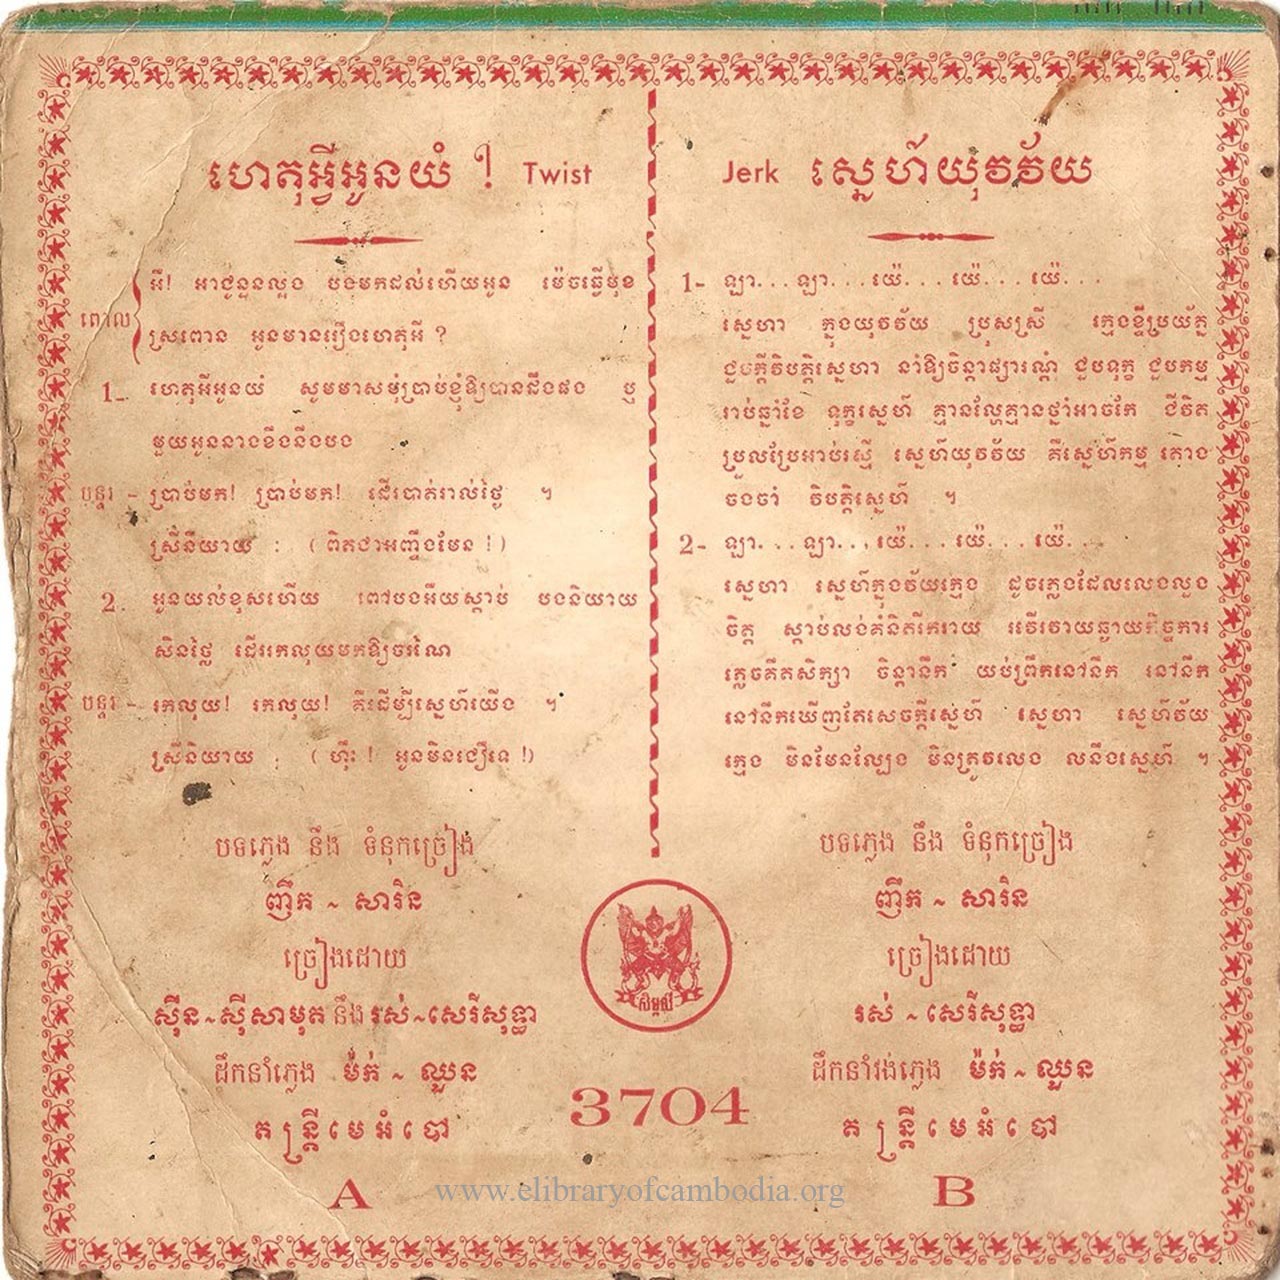 ហេតុអ្វីអូនយំ ! Twist
អឺ! អាជូនួនល្អង បងមកដល់ហើយអូន ម៉េចធ្វើមុខ
ពោល
ស្រពោន អូនមានរឿងហេតុអី ?
1- ហេតុអីអូនយំ សូមមាសមុំប្រាប់ខ្ញុំឱ្យបានដឹងផង ឬ
មួយអូននាងខឹងនឹងបង
បន្ទរ - ប្រាប់មក! ប្រាប់មក! ដើរបាត់រាល់ថ្ងៃ ។
ស្រីនិយាយ : ( ពិតជាអញ្ចឹងមែន ! )
2. អូនយល់ខុសហើយ ពៅបងអើយស្តាប់ បងនិយាយ
សិនថ្លៃ ដើររកលុយមកឱ្យចរណៃ
បន្ទរ - រកលុយ! រកលុយ! គឺដើម្បីស្នេហ៍យើង ។
ស្រីនិយាយ : ( ហ៊ឺះ ! អូនមិនជឿទេ !)
បទភ្លេង នឹង ទំនុកច្រៀង
ញឹក ~ សារិន
ច្រៀងដោយ
ស៊ីន ~ ស៊ីសាមុត នឹង រស់ ~ សេរីសុទ្ធា
ដឹកនាំភ្លេង ម៉ក់ ~ ឈួន
តន្ត្រីមេអំបៅ
A
Jerk ស្នេហ៍យុវវ័យ
1- ឡា. . . ឡា. . . យ៉េ. . . យ៉េ. . . យ៉េ. . .
ស្នេហា ក្នុងយុវវ័យ ប្រុសស្រី ក្មេងខ្ចីប្រយ័ត្ន
ជួបក្តីវិបត្តិស្នេហា នាំឱ្យចិន្តាផ្សារណ្តំ ជួបទុក្ខ ជួបកម្ម
រាប់ឆ្នាំខែ ទុក្ខស្នេហ៍ គ្មានល្ហែគ្មានថ្នាំអាចកែ ជីវិត
ប្រួលប្រែអាប់រស្មី ស្នេហ៍យុវវ័យ គឺស្នេហ៍កម្ម គោង
ចងចាំ វិបត្តិស្នេហ៍ ។
2- ឡា. . . ឡា. . . យ៉េ. . . យ៉េ. . . យ៉េ. . .
ស្នេហា ស្នេហ៍ក្នុងវ័យក្មេង ដូចភ្លេងដែលលេងលួង
ចិត្ត ស្តាប់លង់គំនិតរីករាយ រវើរវាយឆ្ងាយកិច្ចការ
ភ្លេចគឹតសិក្សា ចិន្តានឹក យប់ព្រឹកនៅនឹក នៅនឹក
នៅនឹកឃើញតែសេចក្តីស្នេហ៍ ស្នេហា ស្នេហ៍វ័យ
ក្មេង មិនមែនល្បែង មិនត្រូវលេង លនឹងស្នេហ៍ ។
បទភ្លេង នឹង ទំនុកច្រៀង
ញឹក ~ សារិន
ច្រៀងដោយ
រស់ ~ សេរីសុទ្ធា
ដឹកនាំវង់ភ្លេង ម៉ក់ ~ ឈួន
តន្ត្រីមេអំបៅ
B
3704
www.elibraryofcambodia.org